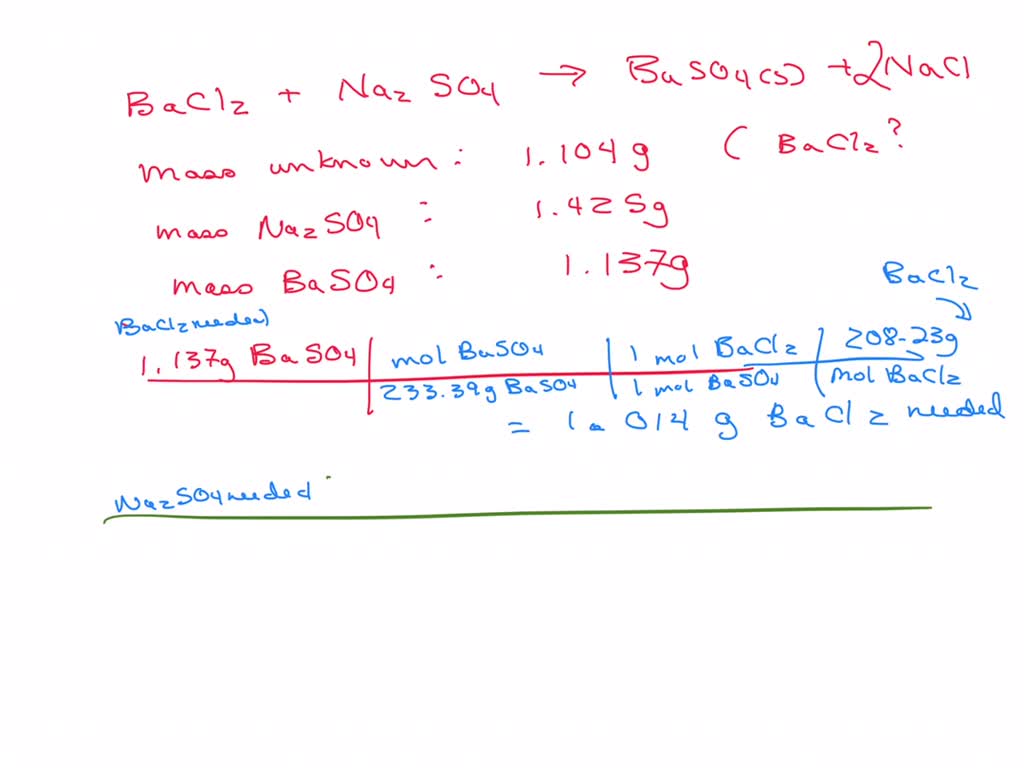 BaCl2 + Na2SO4 → BaSO4(s) + 2NaCl
mass unknown: 1.104 g ( BaCl2?
mass Na2SO4 : 1.425g
mass BaSO4 : 1.137g
BaCl2
BaCl2 needed)
1.137g BaSO4 | mol BaSO4 | 1 mol BaCl2 | 208.23g
233.39g BaSO4 | 1 mol BaSO4 | mol BaCl2
= 1.014 g BaCl2 needed
Na2SO4 needed